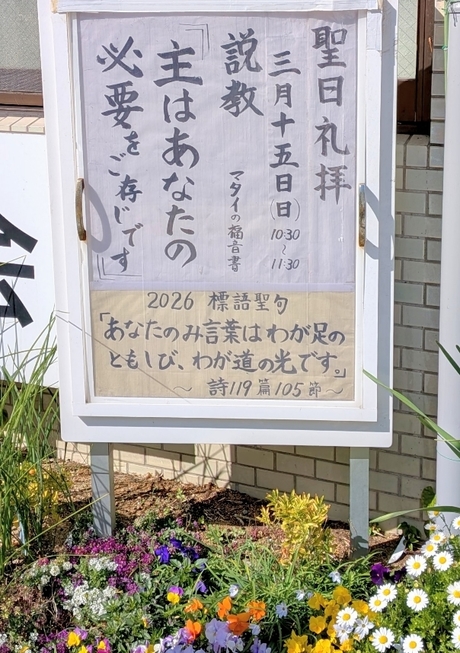 聖日礼拝
三月十五日(日)10:30～11:30
説教 マタイの福音書
「主はあなたの
必要をご存じです」
2026 標語聖句
「あなたのみ言葉はわが足の
ともしび、わが道の光です。」
～詩119篇105節～